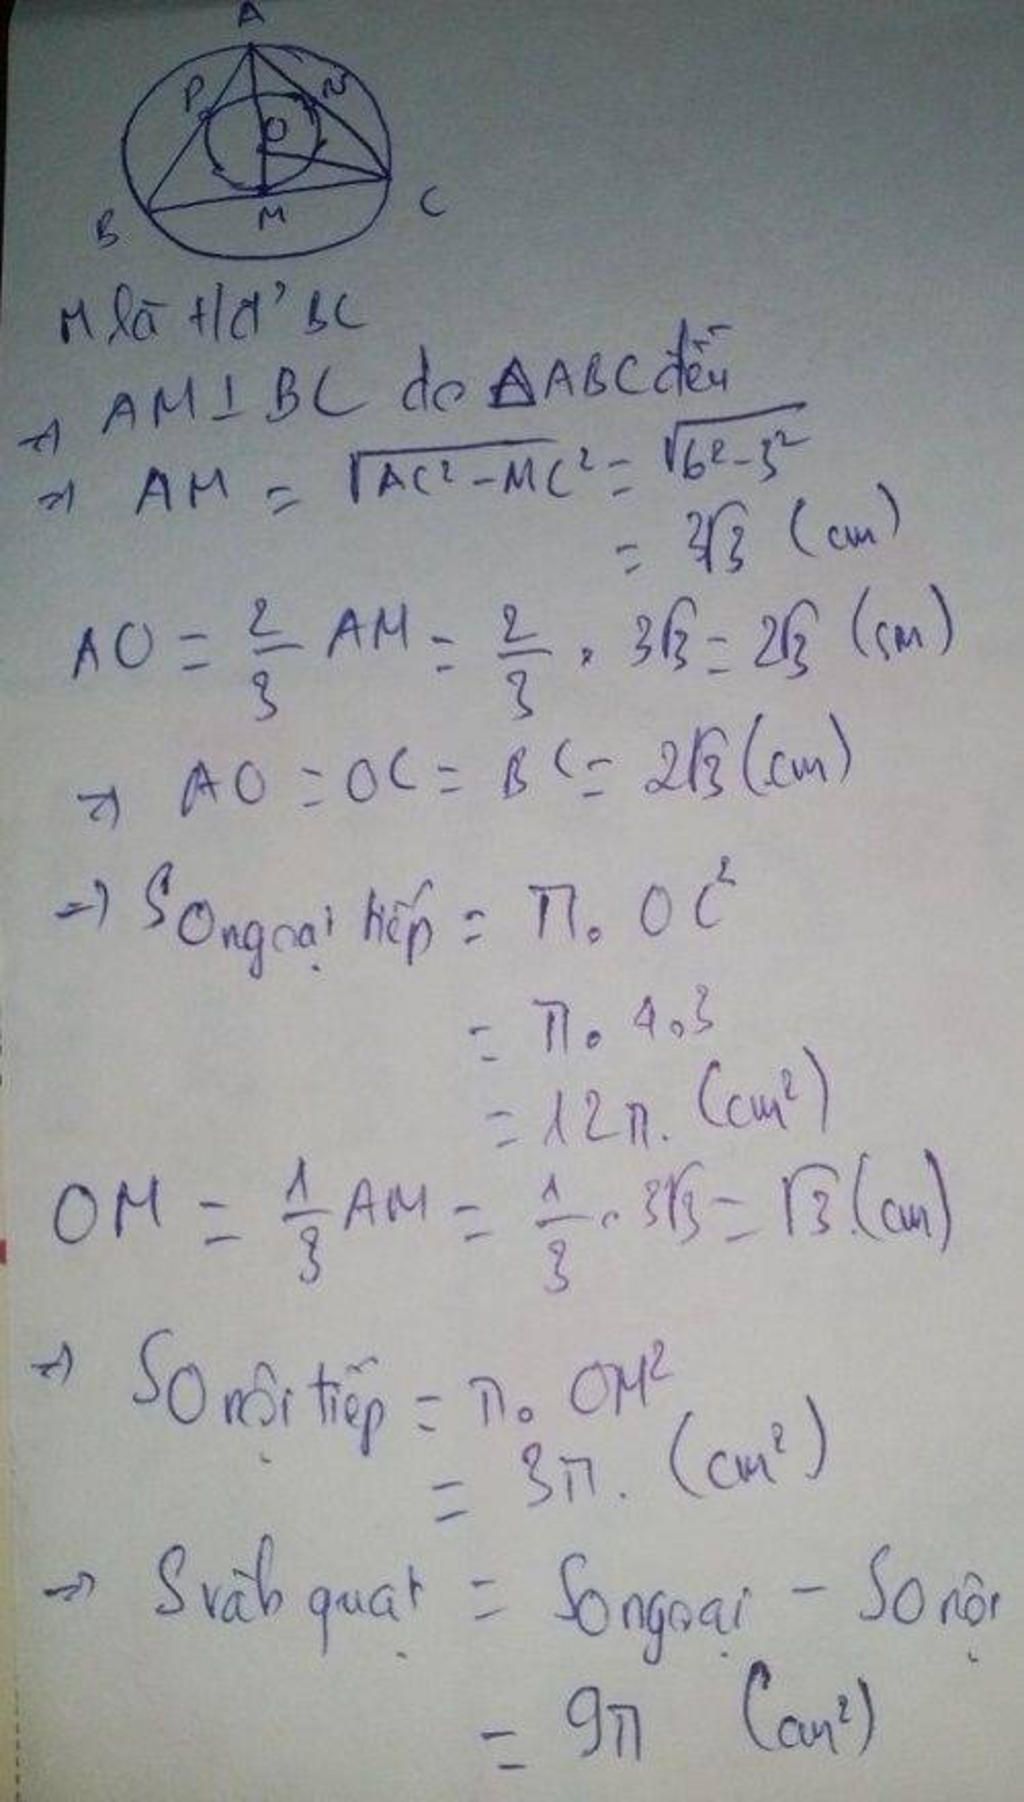 A
P N
O
B M C
M là t/đ' BC
=> AM⊥BC do ΔABC đều
=> AM = √AC²-MC² = √6²-3²
= 3√3 (cm)
AO = 2/3 AM = 2/3 . 3√3 = 2√3 (cm)
=> AO = OC = BC = 2√3 (cm)
=> SO ngoại tiếp = π. OC²
= π. 4.3
= 12π. (cm²)
OM = 1/3 AM = 1/3 . 3√3 = √3 (cm)
=> SO nội tiếp = π. OM²
= 3π. (cm²)
=> S vành quạt = SO ngoại - SO nội
= 9π (cm²)